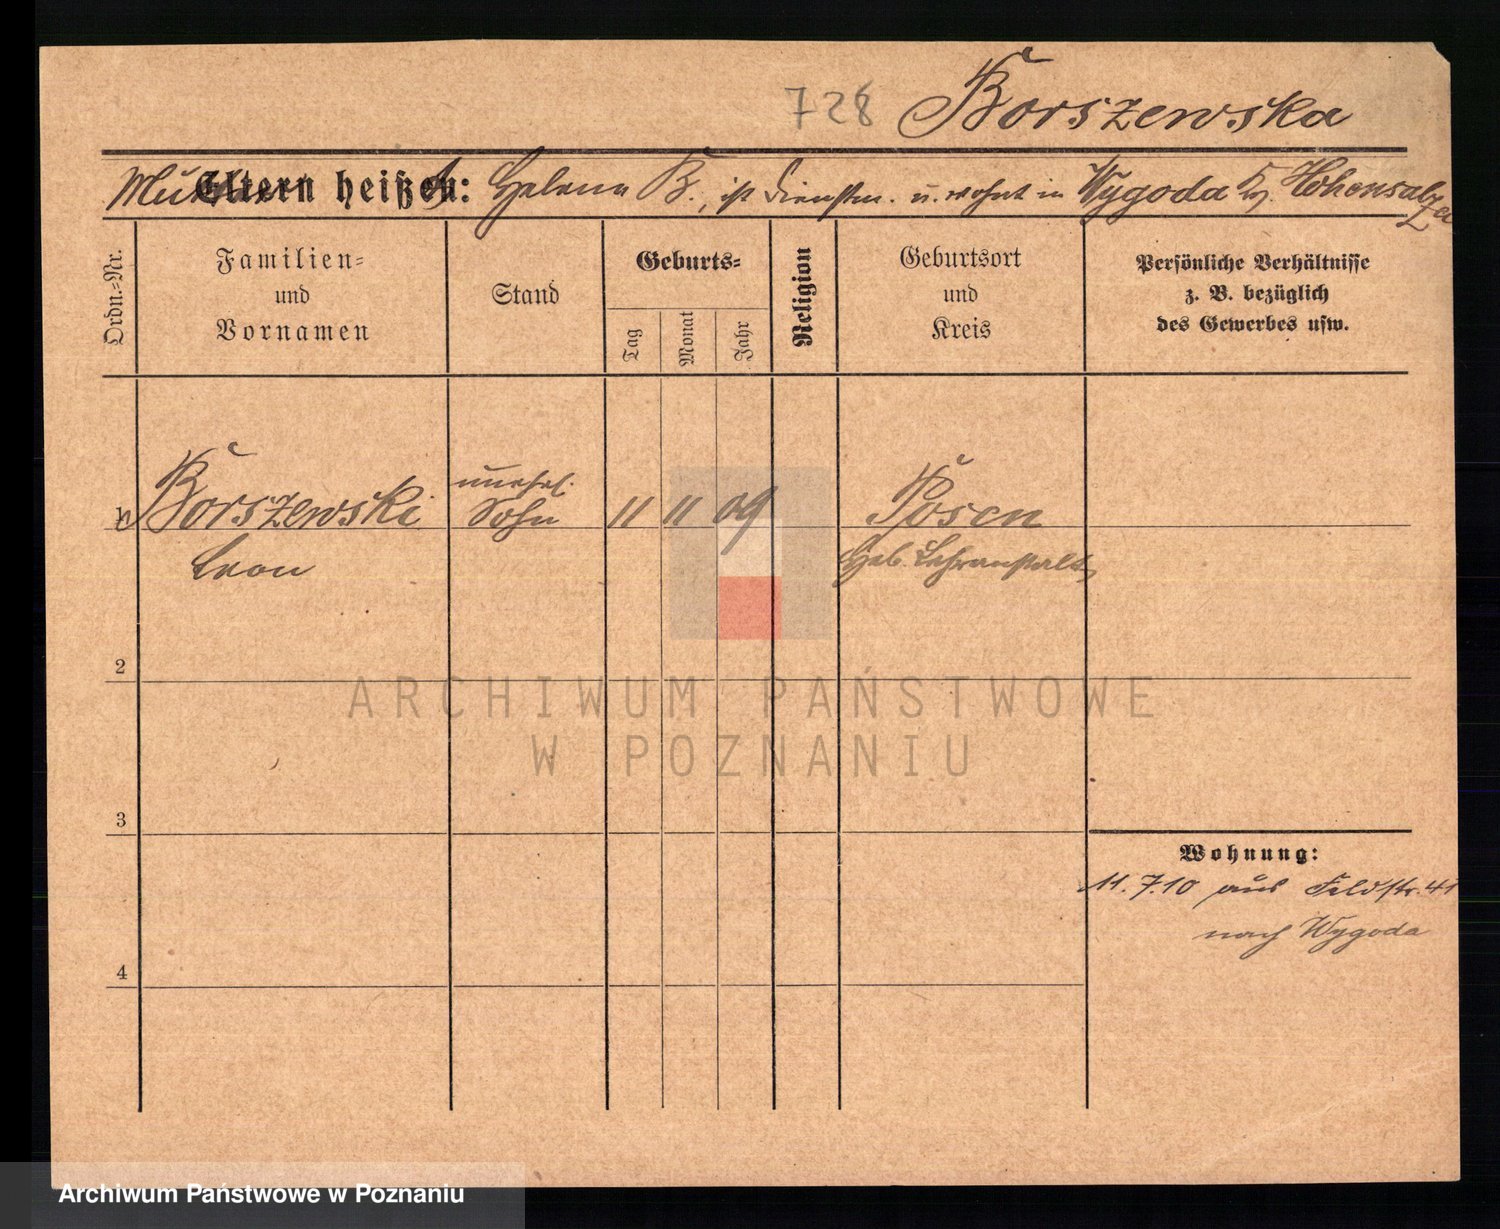 728 Borszewska
Mutter Eltern heißen: Helene B., ist Dienstm. u. wohnt in Wygoda Kr. Hohensalza
Ordn.-Nr.
Familien-
und
Vornamen
Stand
Geburts-
Tag
Monat
Jahr
Religion
Geburtsort
und
Kreis
Persönliche Verhältnisse
z. B. bezüglich
des Gewerbes usw.
1 Borszewski unehel. Sohn 11 11 09 Posen
Leon Heb. Lehranstalt
2
ARCHIWUM PAŃSTWOWE
W POZNANIU
3
Wohnung:
11.7.10 aus Feldstr. 41
nach Wygoda
4
Archiwum Państwowe w Poznaniu